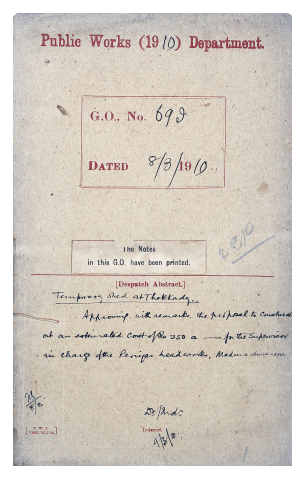 Public Works (1910) Department.
G.O., No. 69
DATED 8/3/1910.
The Notes
in this G.O. have been printed.
[Despatch Abstract.]
Temporary Shed at Thekkady
Approving, with remarks, the proposal to construct
at an estimated cost of Rs 350 a — for the Supervisor
in charge of the Periyar headworks, Madura